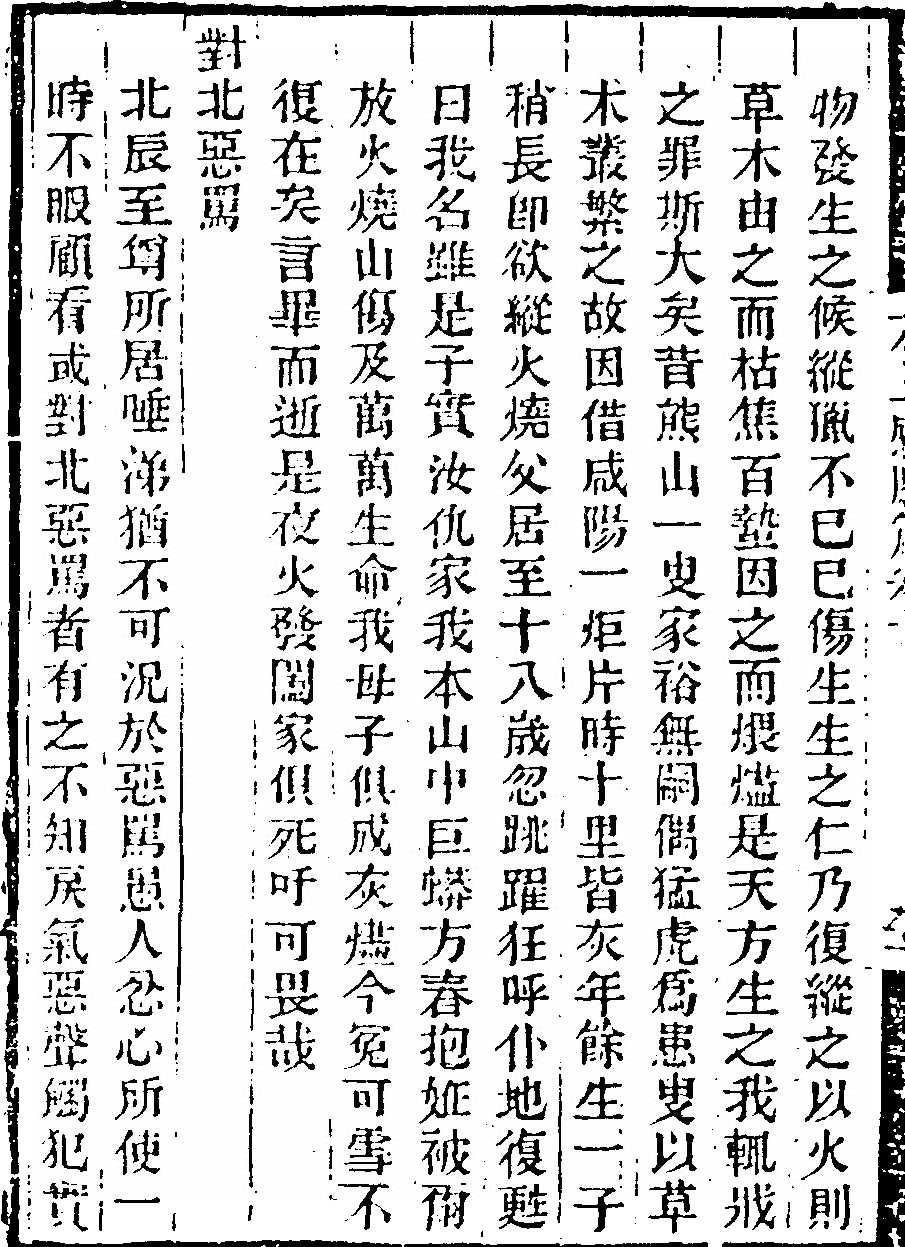 物發生之候縱獵不已已傷生生之仁乃復縱之以火則
草木由之而枯焦百蟄因之而煨燼是天方生之我輒戕
之罪斯大矣昔熊山一叟家裕無嗣偶猛虎爲患叟以草
木叢繁之故因借咸陽一炬片時十里皆灰年餘生一子
稍長卽欲縱火燒父居至十八歲忽跳躍狂呼仆地復甦
曰我名雖是子實汝仇家我本山中巨蟒方春抱娠被爾
放火燒山傷及萬萬生命我母子俱成灰燼今寃可雪不
復在矣言畢而逝是夜火發闔家俱死吁可畏哉
對北惡罵
北辰至尊所居唾涕猶不可況於惡罵愚人忿心所使一
時不暇顧看或對北惡罵者有之不知戾氣惡聲觸犯實